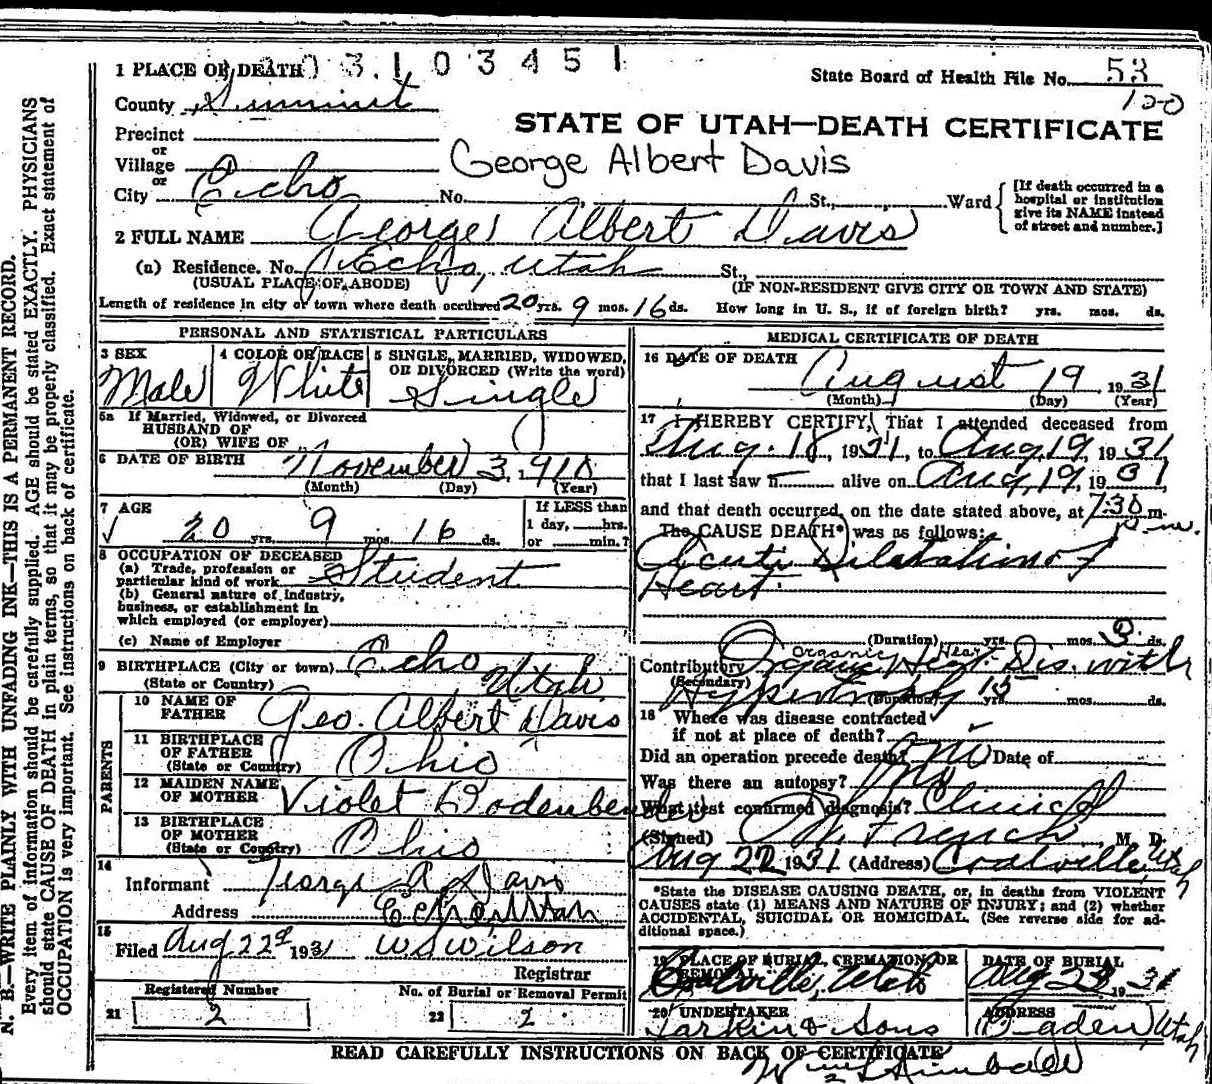 N. B.—WRITE PLAINLY WITH UNFADING INK—THIS IS A PERMANENT RECORD.
Every item of information should be carefully supplied. AGE should be stated EXACTLY. PHYSICIANS
should state CAUSE OF DEATH in plain terms, so that it may be properly classified. Exact statement of
OCCUPATION is very important. See instructions on back of certificate.
03103451
1 PLACE OF DEATH
State Board of Health File No. 53
120
County Summit
STATE OF UTAH—DEATH CERTIFICATE
Precinct
or
Village
George Albert Davis
or
City Echo No. St., Ward
[If death occurred in a
hospital or institution
give its NAME instead
of street and number.]
2 FULL NAME George Albert Davis
(a) Residence. No. Echo, Utah St.,
(USUAL PLACE OF ABODE) (IF NON-RESIDENT GIVE CITY OR TOWN AND STATE)
Length of residence in city or town where death occurred 20 yrs. 9 mos. 16 ds. How long in U. S., if of foreign birth? yrs. mos. ds.
PERSONAL AND STATISTICAL PARTICULARS
3 SEX 4 COLOR OR RACE 5 SINGLE, MARRIED, WIDOWED,
OR DIVORCED (Write the word)
Male White Single
5a If Married, Widowed, or Divorced
HUSBAND OF
(OR) WIFE OF
6 DATE OF BIRTH November 3, 1910
(Month) (Day) (Year)
7 AGE
20 yrs. 9 mos. 16 ds.
If LESS than
1 day, hrs.
or min.?
8 OCCUPATION OF DECEASED
(a) Trade, profession or
particular kind of work Student
(b) General nature of industry,
business, or establishment in
which employed (or employer)
(c) Name of Employer
9 BIRTHPLACE (City or town) Echo
(State or Country) Utah
PARENTS
10 NAME OF
FATHER Geo. Albert Davis
11 BIRTHPLACE
OF FATHER Ohio
(State or Country)
12 MAIDEN NAME
OF MOTHER Violet
13 BIRTHPLACE
OF MOTHER Ohio
(State or Country)
14
Informant George A. Davis
Address Echo, Utah
15
Filed Aug 22d 1931 W S Wilson
Registrar
Registered Number No. of Burial or Removal Permit
21 2 22 2
MEDICAL CERTIFICATE OF DEATH
16 DATE OF DEATH
August 19 1931
(Month) (Day) (Year)
17 I HEREBY CERTIFY, That I attended deceased from
Aug. 18, 1931, to Aug 19, 1931
that I last saw h alive on Aug, 19, 1931,
and that death occurred, on the date stated above, at 7:30 m.
p. m.
The CAUSE DEATH* was as follows:
Acute Dilatation of
Heart.
(Duration) yrs. mos. 3 ds.
Organic Heart
Contributory Organic Heart Dis. with
(Secondary) Hypertrophy (Duration) 15 yrs. mos. ds.
18 Where was disease contracted
if not at place of death?
Did an operation precede death? no Date of
Was there an autopsy? no
What test confirmed diagnosis? Clinical
(Signed) French M. D.
Aug 22 1931 (Address) Coalville, Utah
*State the DISEASE CAUSING DEATH, or, in deaths from VIOLENT
CAUSES state (1) MEANS AND NATURE OF INJURY; and (2) whether
ACCIDENTAL, SUICIDAL OR HOMICIDAL. (See reverse side for ad-
ditional space.)
19 PLACE OF BURIAL, CREMATION OR
REMOVAL
Coalville, Utah
DATE OF BURIAL
Aug 23 1931
20 UNDERTAKER
Larkin & Sons
ADDRESS
Ogden, Utah
READ CAREFULLY INSTRUCTIONS ON BACK OF CERTIFICATE